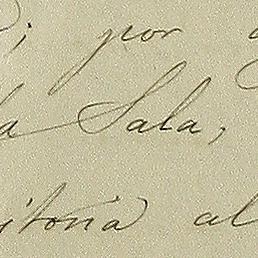 ; por
la Sala,
itoria al